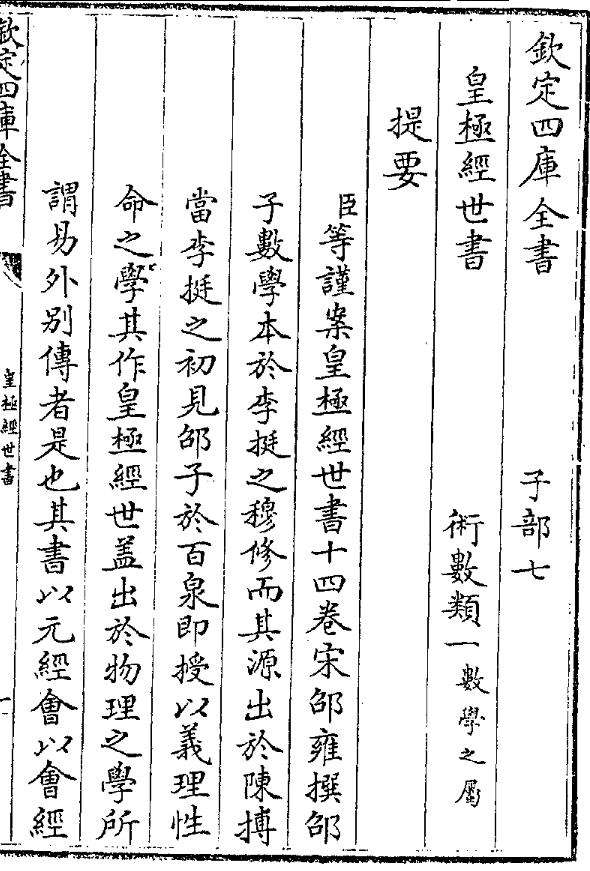 欽定四庫全書 子部七
皇極經世書 術數類一數學之屬
提要
臣等謹案皇極經世書十四卷宋邵雍撰邵
子數學本於李挺之穆修而其源出於陳摶
當李挺之初見邵子於百泉即授以義理性
命之學其作皇極經世盖出於物理之學所
謂易外別傳者是也其書以元經會以會經
欽定四庫全書 皇極經世書 一